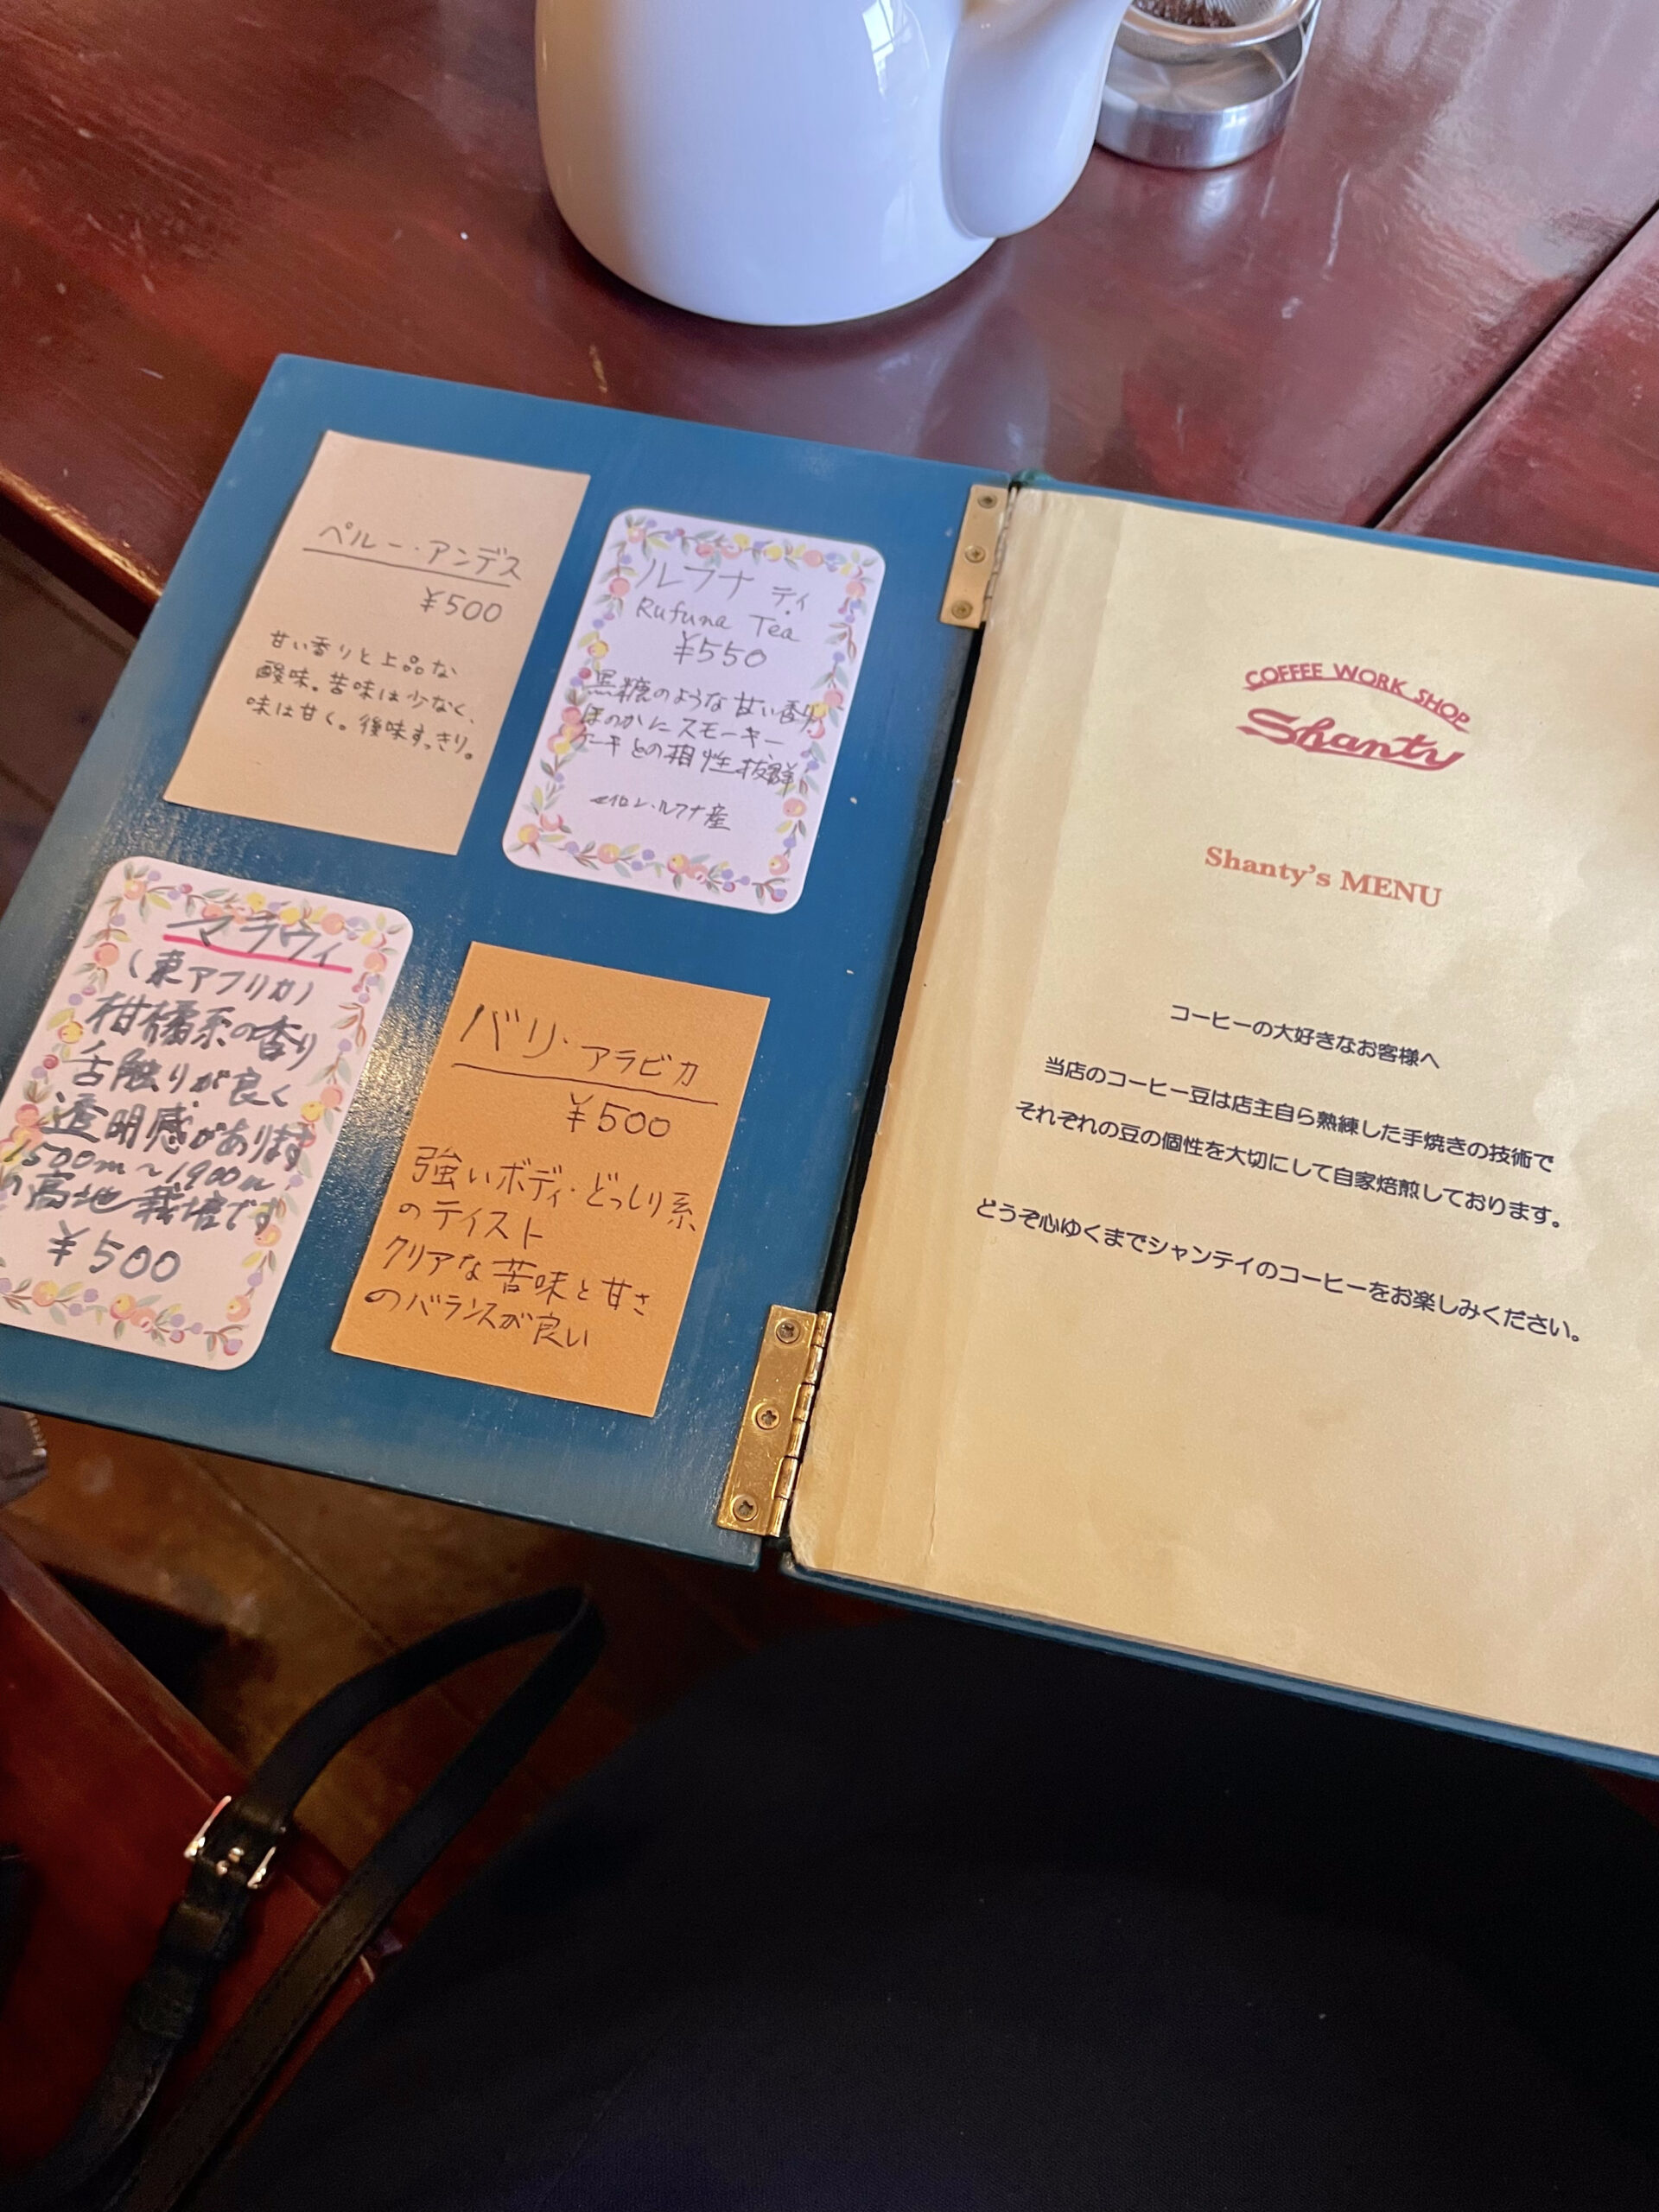 ペルー・アンデス
¥500
甘い香りと上品な
酸味。苦味は少なく、
味は甘く。後味すっきり。
ルフナ ティ
Rufuna Tea
¥550
黒糖のような甘い香り
ほのかにスモーキー
ケーキとの相性抜群!
セイロン・ルフナ産
マラウィ
(東アフリカ)
柑橘系の香り
舌触りが良く
透明感があります
1500m～1,900m
の高地栽培です
¥500
バリ・アラビカ
¥500
強いボディ・どっしり系
のテイスト
クリアな苦味と甘さ
のバランスが良い
COFFEE WORK SHOP
Shanty
Shanty's MENU
コーヒーの大好きなお客様へ
当店のコーヒー豆は店主自ら熟練した手焼きの技術で
それぞれの豆の個性を大切にして自家焙煎しております。
どうぞ心ゆくまでシャンテイのコーヒーをお楽しみください。